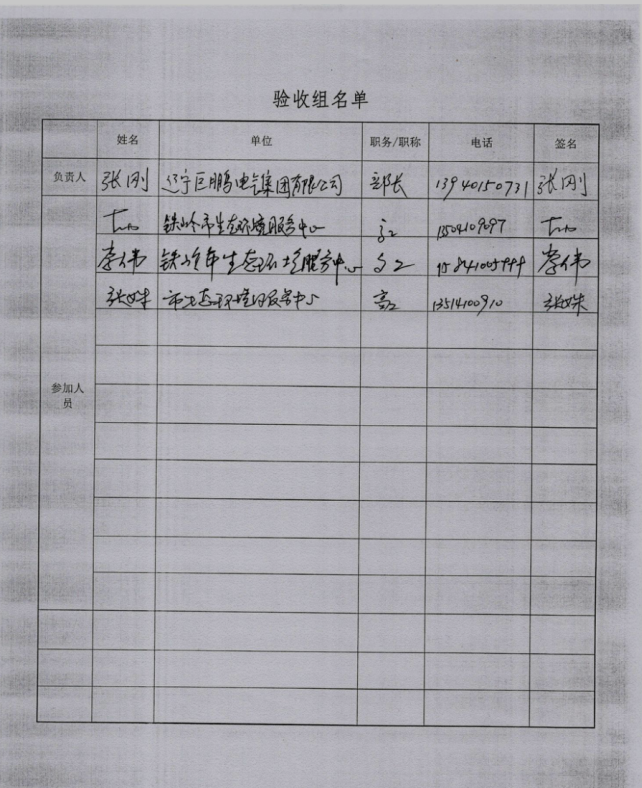 验收组名单
姓名 单位 职务/职称 电话 签名
负责人 张刚 辽宁巨鹏电气集团有限公司 部长 13940150731 张刚
铁岭市生态环境服务中心 高工
李伟 铁岭市生态环境服务中心 高工 李伟
张姝 市生态环境服务中心 高工 13514100910 张姝
参加人
员